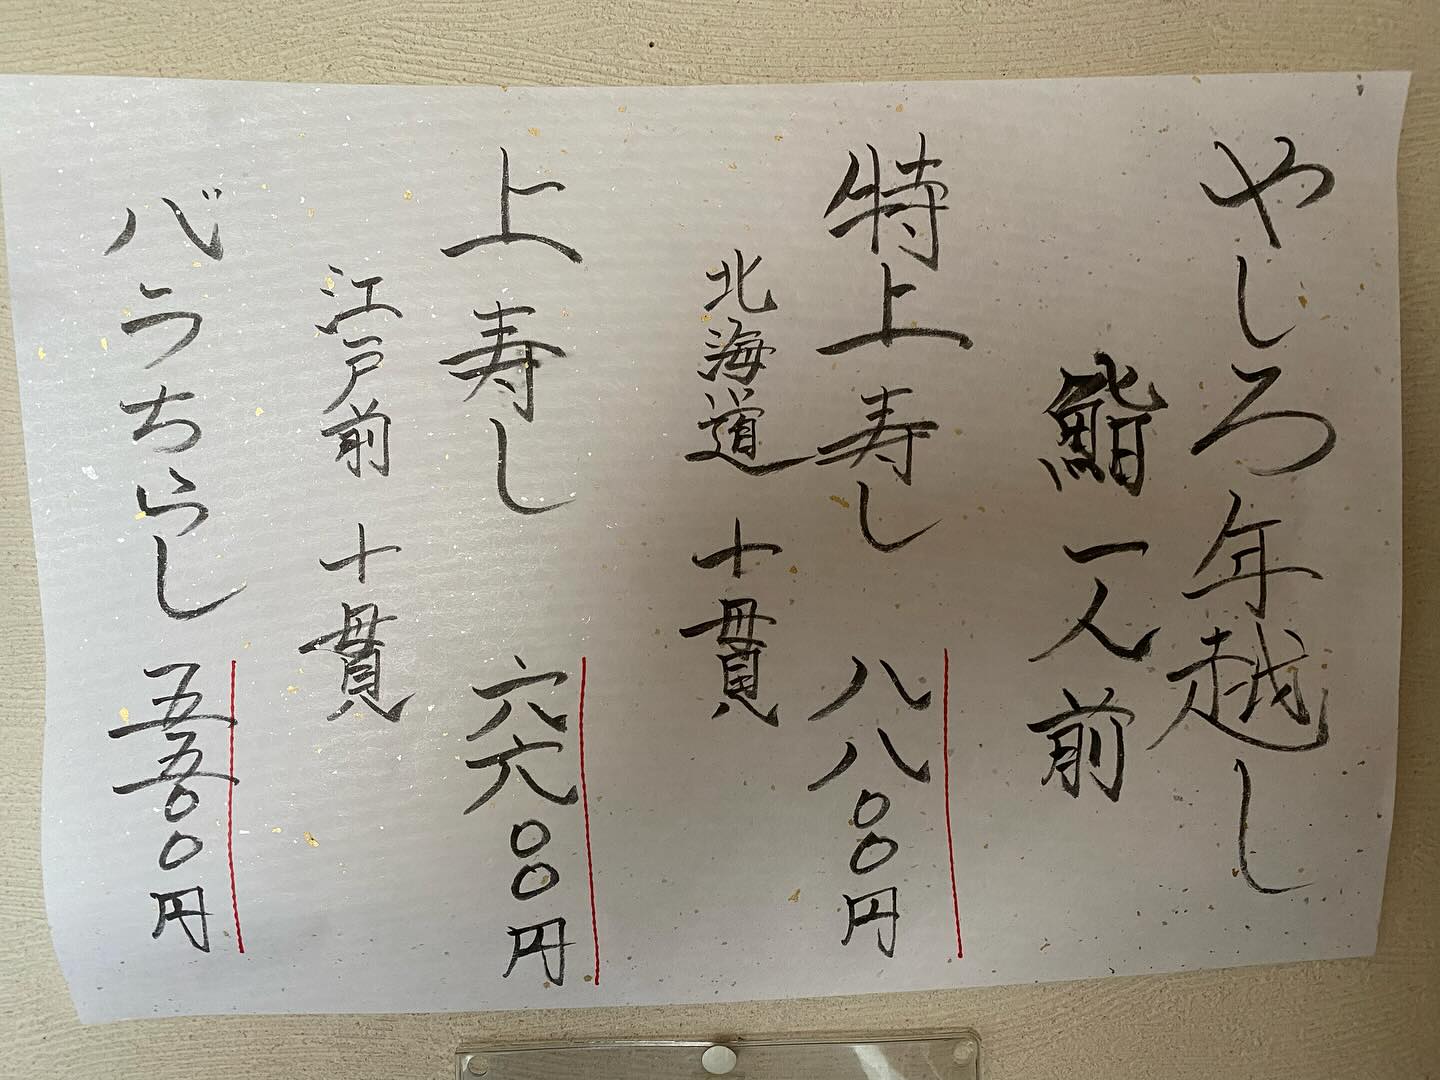 やしろ年越し
鮨一人前
特上寿し 八八〇〇円
北海道 十貫
上寿し 六六〇〇円
江戸前 十貫
バうちらし 五五〇〇円